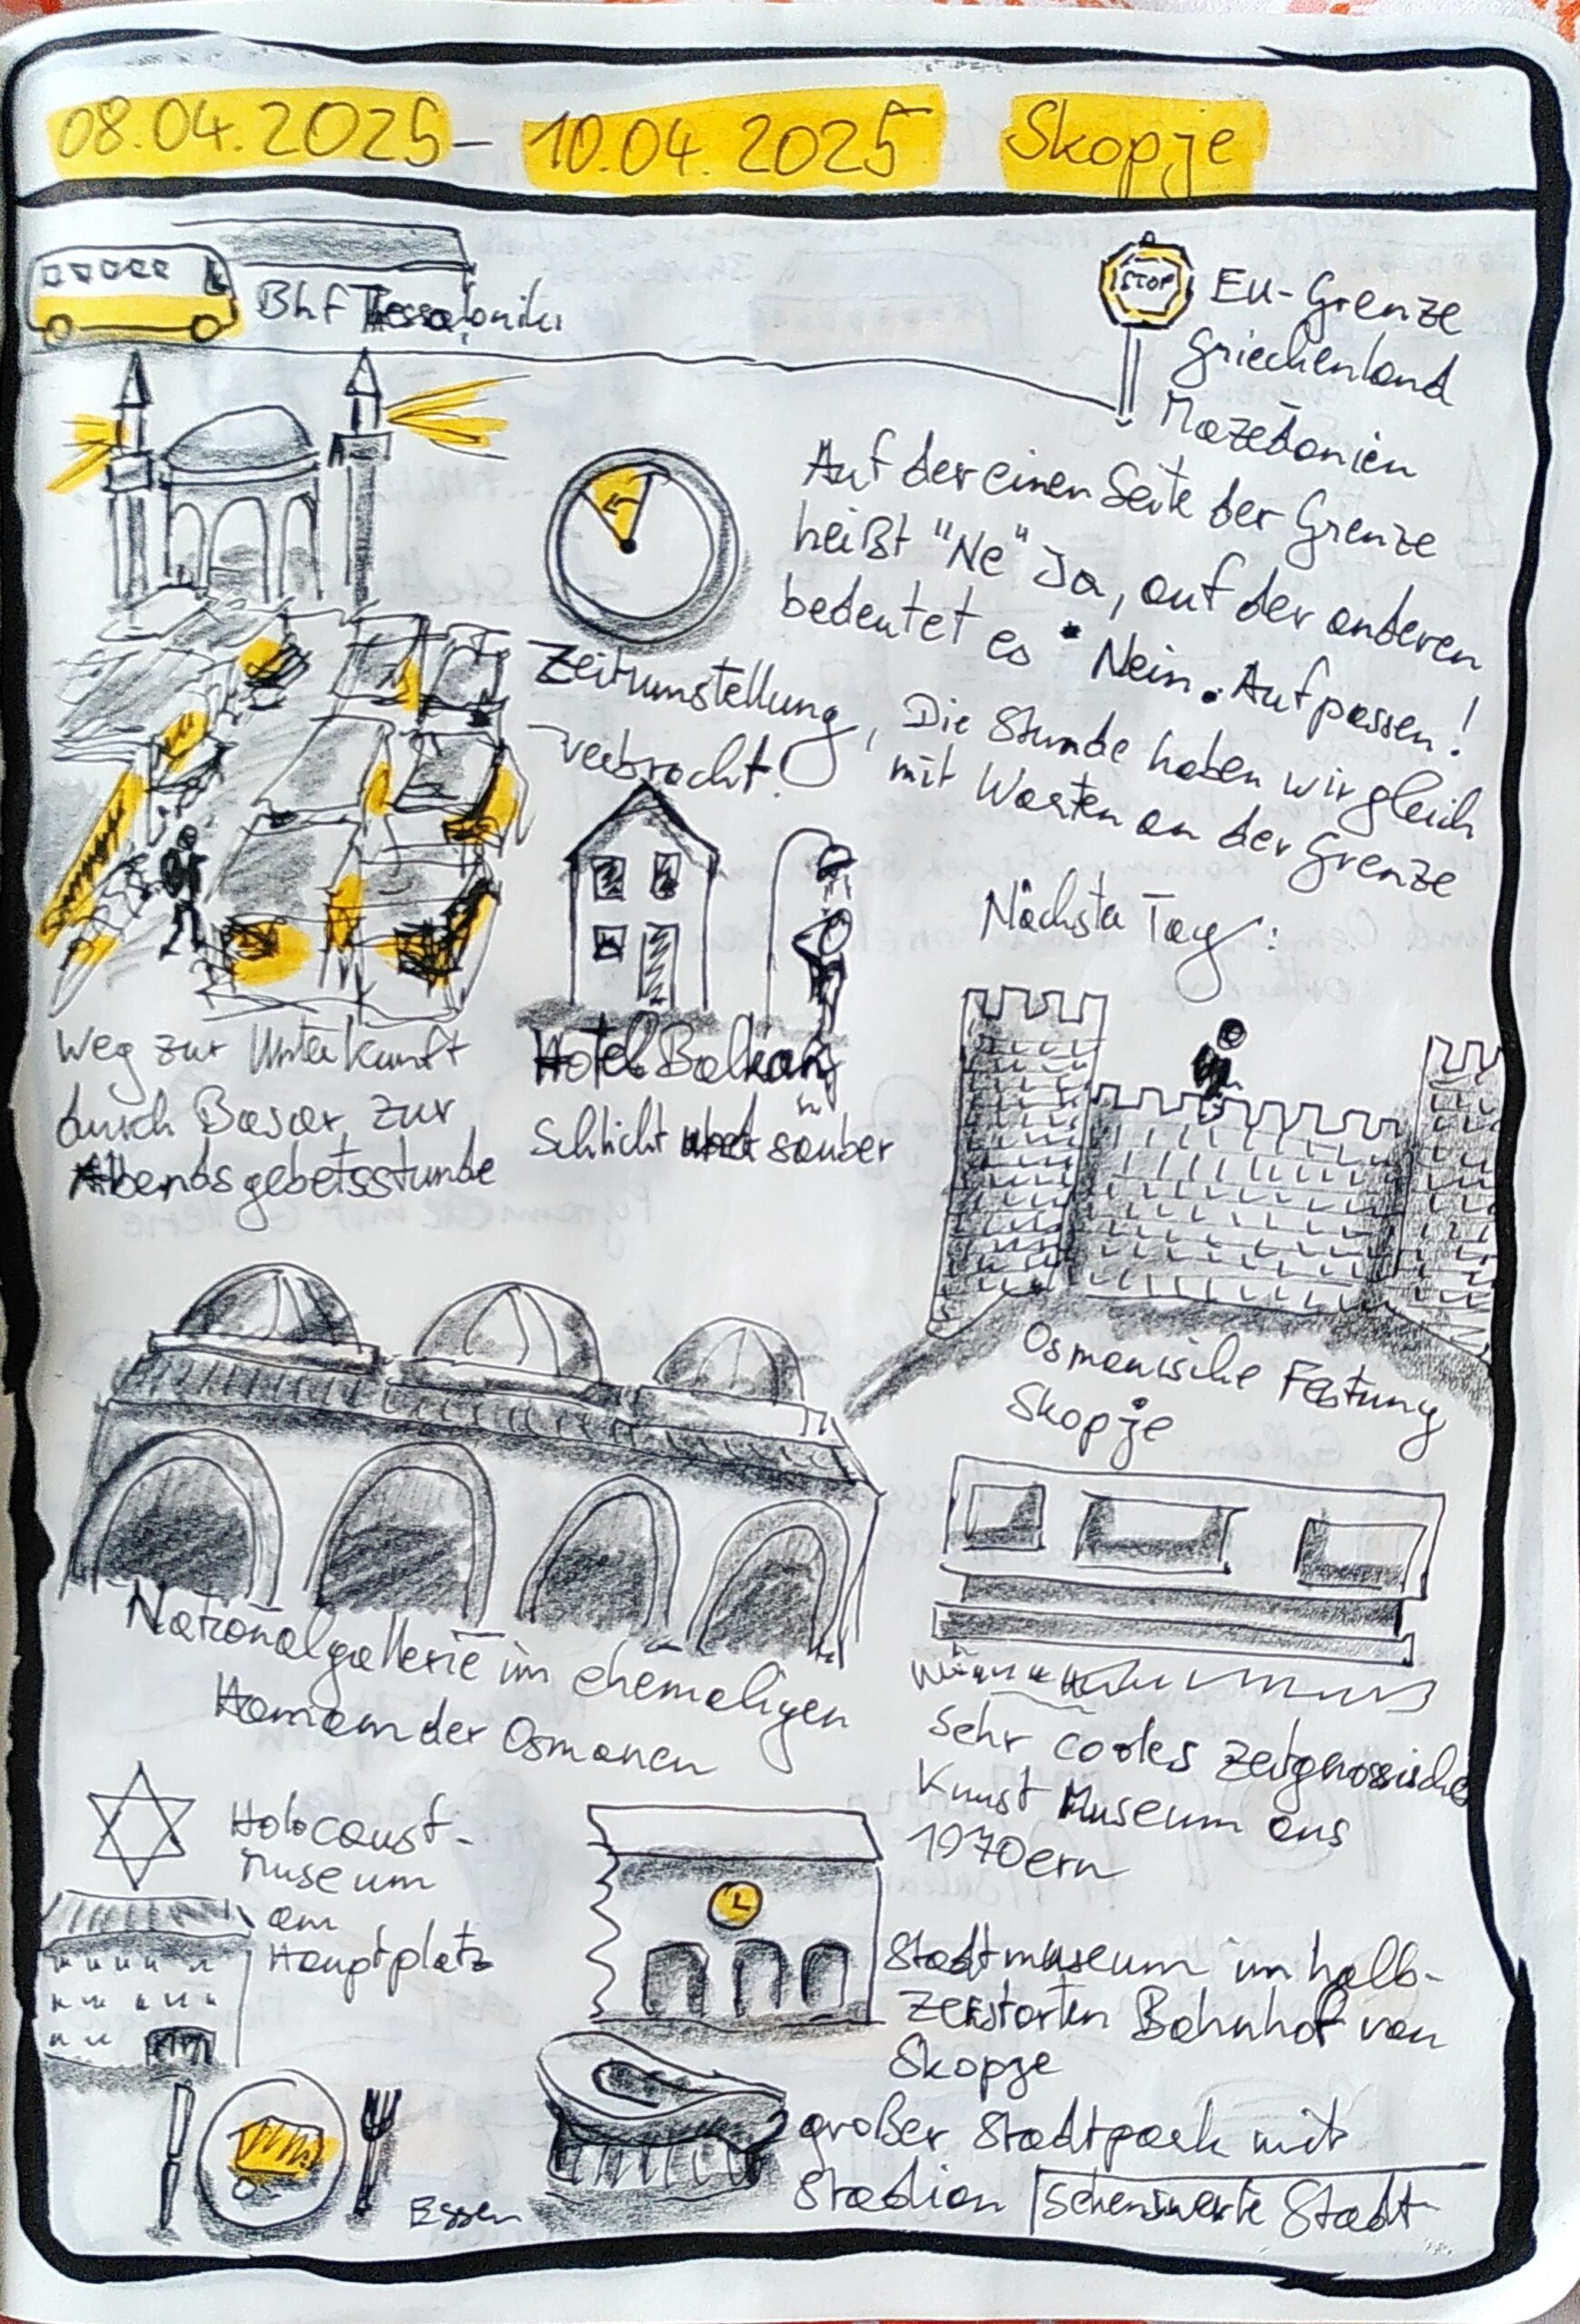 08.04.2025 – 10.04.2025 Skopje
Bhf Thessaloniki
STOP
EU-Grenze
Griechenland
Mazedonien
Auf der einen Seite der Grenze
heißt "Ne" Ja, auf der anderen
bedeutet es Nein. Aufpassen!
Zeitumstellung, Die Stunde haben wir gleich
mit Warten an der Grenze
verbracht.
Weg zur Unterkunft
durch Basar zur
Abendsgebetsstunde
Hotel Balkan
Schlicht und sauber
Nächster Tag:
Osmanische Festung
Skopje
Nationalgallerie im ehemaligen
Hamam der Osmanen
Sehr cooles zeitgnössisches
Kunst Museum aus
1970ern
Holocaust-
Museum
am
Hauptplatz
Stadtmuseum im halb-
zerstörten Bahnhof von
Skopje
großer Stadtpark mit
Stadion
Sehenswerte Stadt
Essen